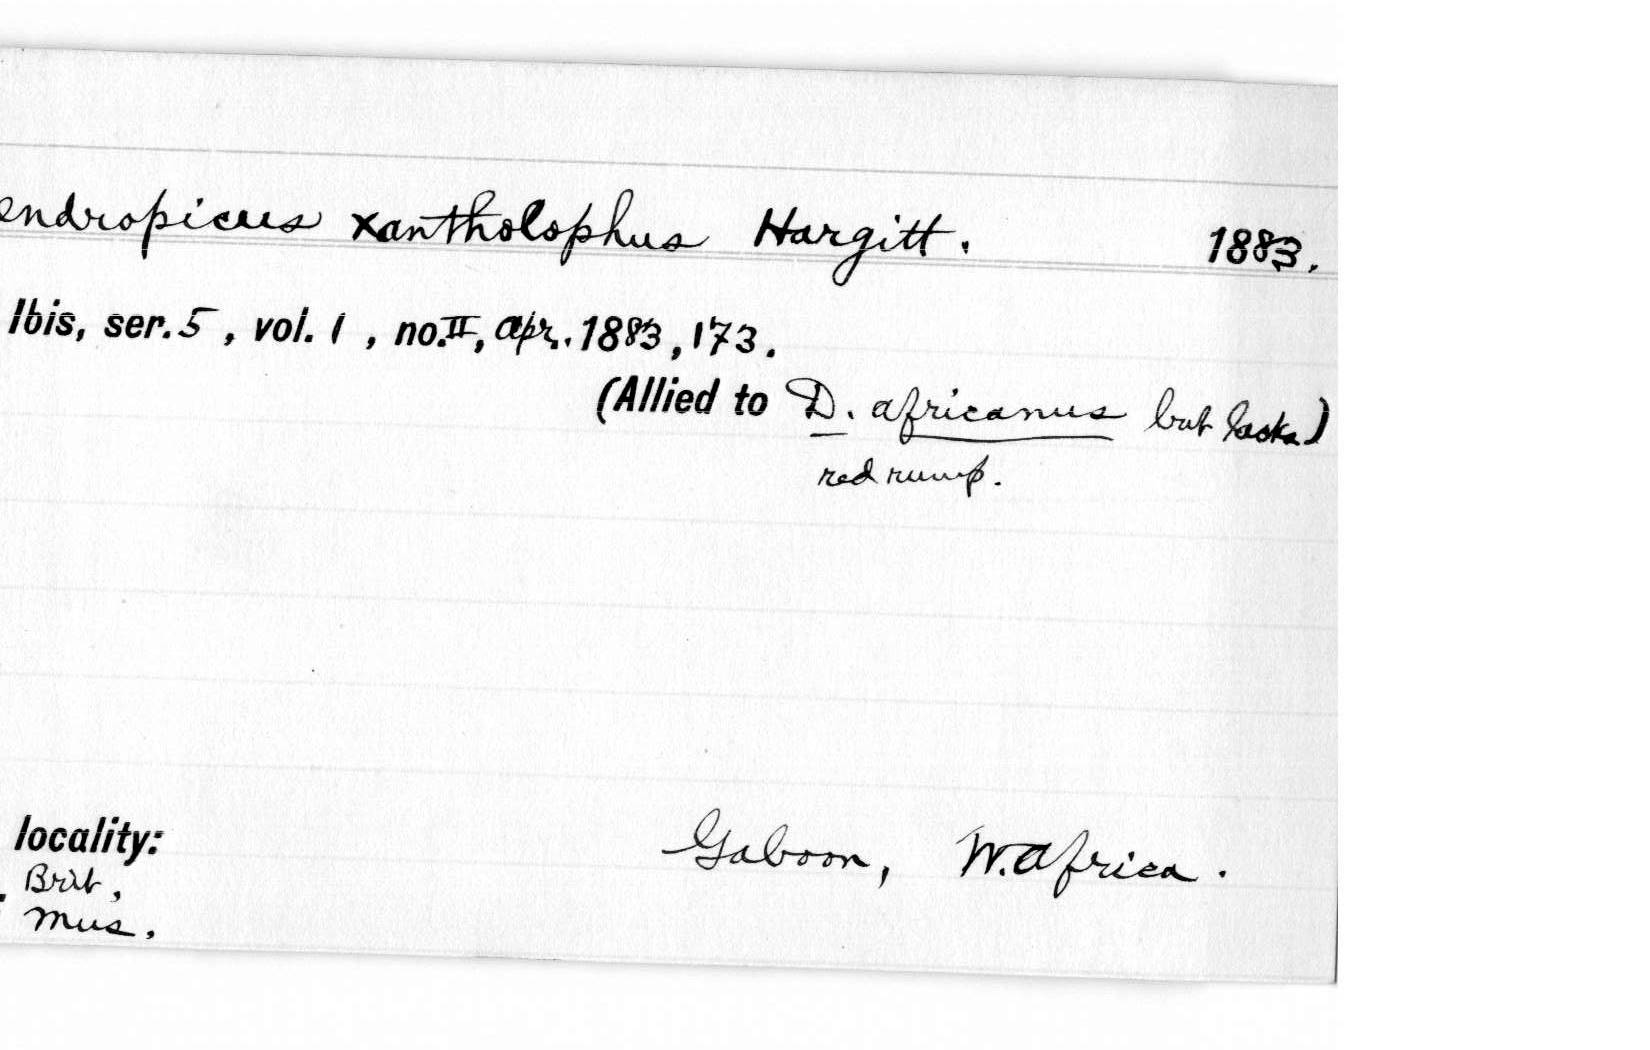 endropicus xantholophus Hargitt. 1883.
Ibis, ser. 5, vol. 1, no. II, Apr. 1883, 173.
(Allied to D. africanus but lacks)
red rump.
locality: Gaboon, W. Africa.
Brit.
Mus.